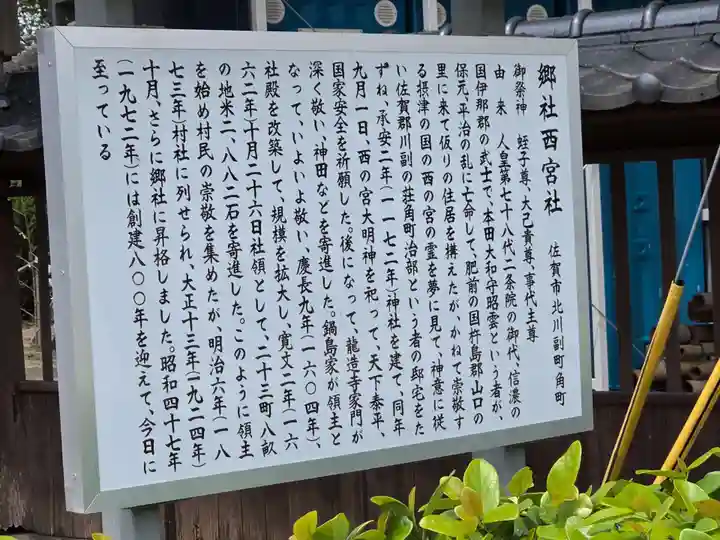 郷社西宮社
佐賀市北川副町角町
御祭神　蛭子尊、大己貴尊、事代主尊
由　来　人皇第七十八代二条院の御代、信濃の
国伊那郡の武士で、本田大和守昭雲という者が、
保元、平治の乱に亡命して、肥前の国杵島郡山口の
里に来て仮りの住居を構えたが、かねて崇敬す
る摂津の国の西の宮の霊を夢に見て、神意に従
い佐賀郡川副の荘角町治部という者の邸宅をた
ずね、承安二年（一一七二年）神社を建て、同年
九月一日、西の宮大明神を祀って、天下泰平、
国家安全を祈願した。後になって、龍造寺家門が
深く敬い、神田などを寄進した。鍋島家が領主と
なって、いよいよ敬い、慶長九年（一六〇四年）、
社殿を改築して、規模を拡大し、寛文二年（一六
六二年）十月二十六日社領として、二十三町八畝
の地米二、八八二石を寄進した。このように領主
を始め村民の崇敬を集めたが、明治六年（一八
七三年）村社に列せられ、大正十三年（一九二四年）
十月、さらに郷社に昇格しました。昭和四十七年
（一九七二年）には創建八〇〇年を迎えて、今日に
至っている